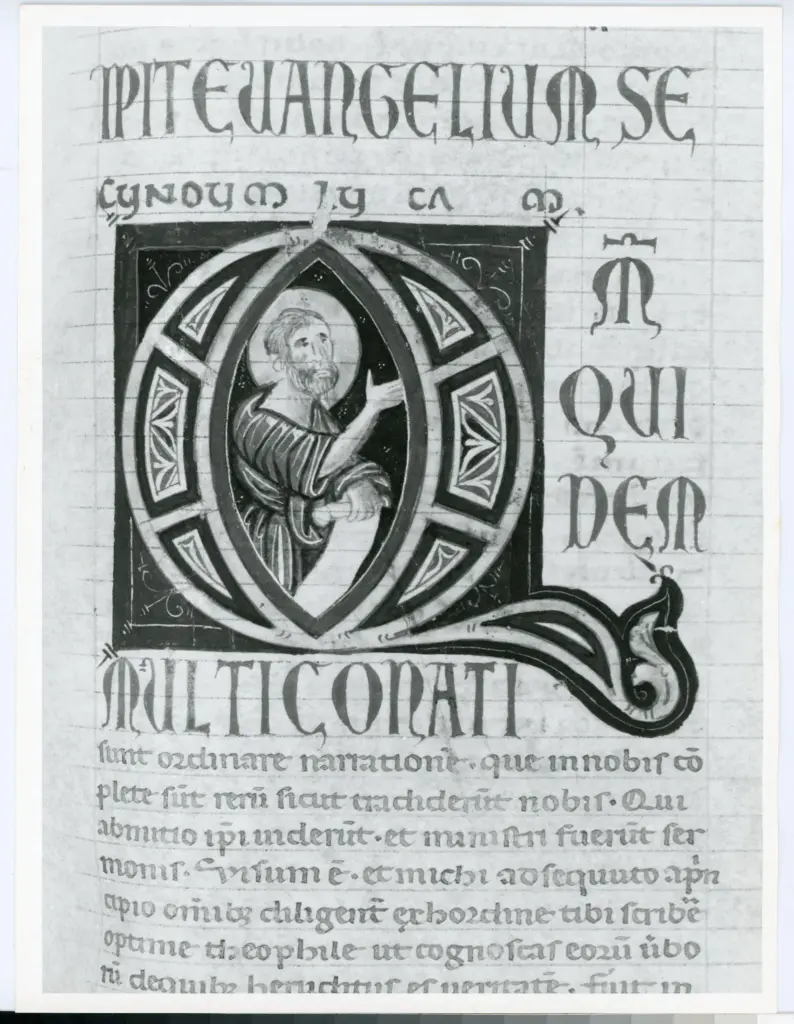 IPIT EUANGELIUM SE
CUNDUM LU CA M.
Q
M̄
QUI
DEM
MULTI CONATI
sunt ordinare narrationē. que in nobis cō
plete sūt rerū sicut tradiderūt nobis. Qui
abinitio ip̄i uiderūt. et ministri fuerūt ser
monis. Visum ē. et michi adsequuto aprin
cipio omīb; diligent̄ exhordine tibi scribē
optime theophile ut cognoscas eorū ūbo
rū dequib; heruditus es ueritatē. Fuit in